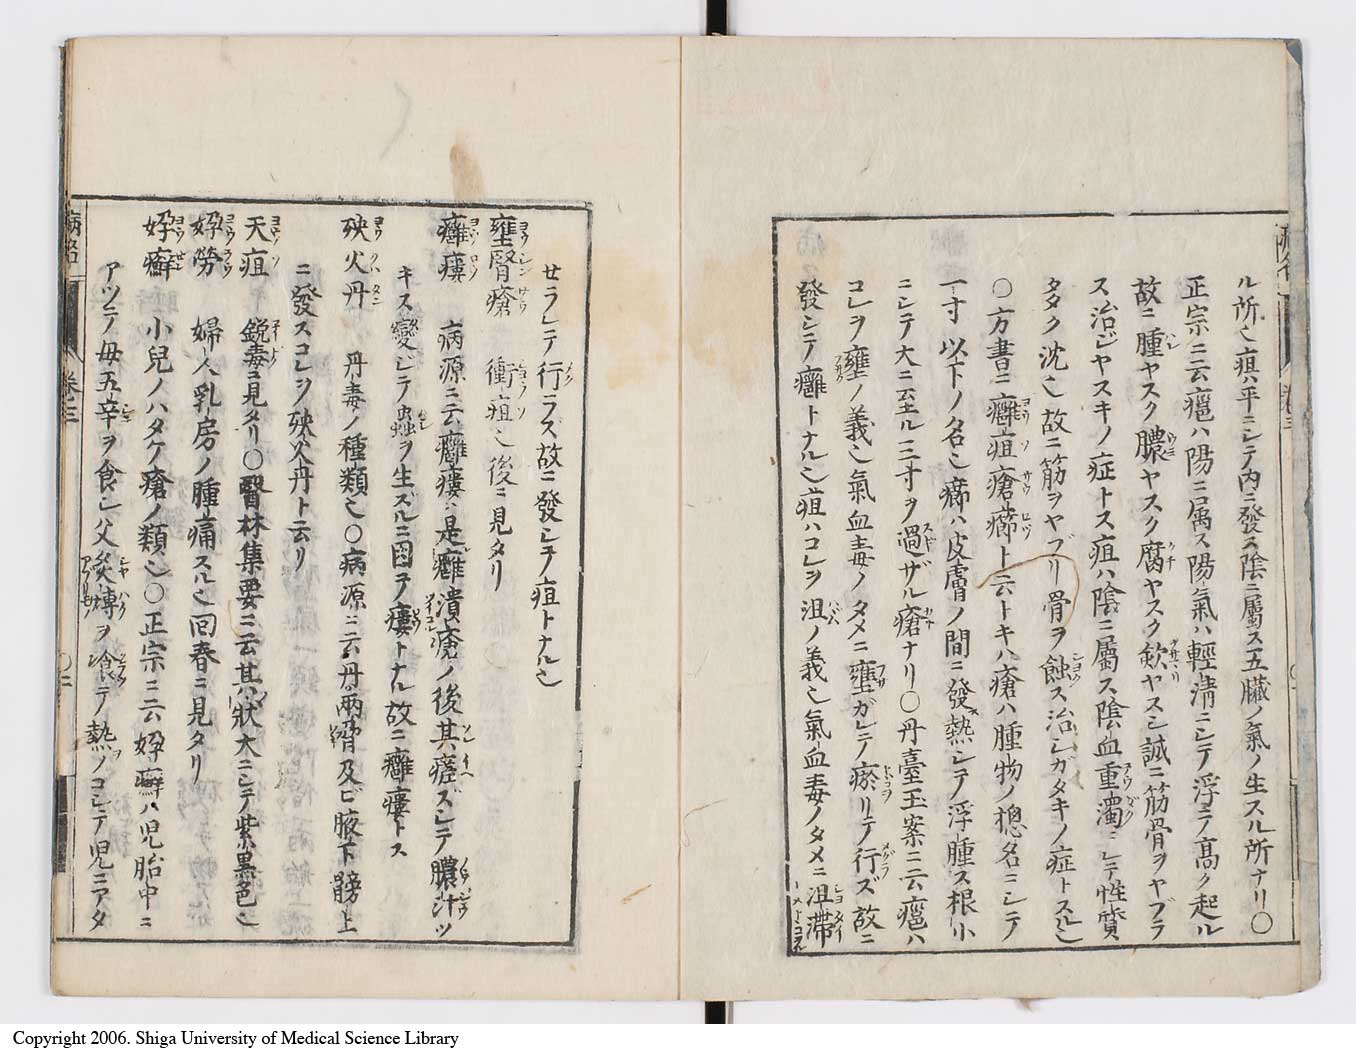 ル所也疽ハ平ニシテ内ニ發ス陰ニ屬ス五臓ノ氣ノ生スル所ナリ〇
正宗ニ云癰ハ陽ニ属ス陽氣ハ輕清ニシテ浮テ高ク起ル
故ニ腫ヤスク膿ヤスク腐ヤスク斂ヤスシ誠ニ筋骨ヲヤブラ
ス治シヤスキノ症トス疽ハ陰ニ屬ス陰血重濁ニシテ性質
タタク沈也故ニ筋ヲヤブリ骨ヲ蝕ス治シガタキノ症トス也
〇方書ニ癰疽瘡癤ト云トキハ瘡ハ腫物ノ總名ニシテ
一寸以下ノ名也癤ハ皮膚ノ間ニ發熱シテ浮腫ス根小
ニシテ大ニ至ル二三寸ヲ過ザル瘡ナリ〇丹臺玉案ニ云癰ハ
コレヲ壅ノ義也氣血毒ノタメニ壅ガレテ瘀リテ行ズ故ニ
發シテ癰トナル也疽ハコレヲ沮ノ義也氣血毒ノタメニ沮滞
セラレテ行ラズ故ニ發シテ疽トナル也
壅腎瘡 衝疽也後ニ見タリ
癰瘻 病源ニ云癰瘻ハ是癰潰瘡ノ後其瘥ズシテ膿汁ツ
キス變シテ蟲ヲ生ズルニ因テ瘻トナル故ニ癰瘻トス
殃火丹 丹毒ノ種類也〇病源ニ云丹両脅及ビ腋下髈上
ニ發スコレヲ殃火丹ト云リ
夭疽 鋭毒ニ見タリ〇醫林集要ニ云其狀大ニシテ紫黒色也
㛛勞 婦人乳房ノ腫痛スル也回春ニ見タリ
㛛癬 小兒ノハタケ瘡ノ類也〇正宗ニ云㛛癬ハ児胎中ニ
アツテ母五辛ヲ食シ父炙煿ヲ食テ熱ノコシテ児ニアタ
病名
巻三
〇二